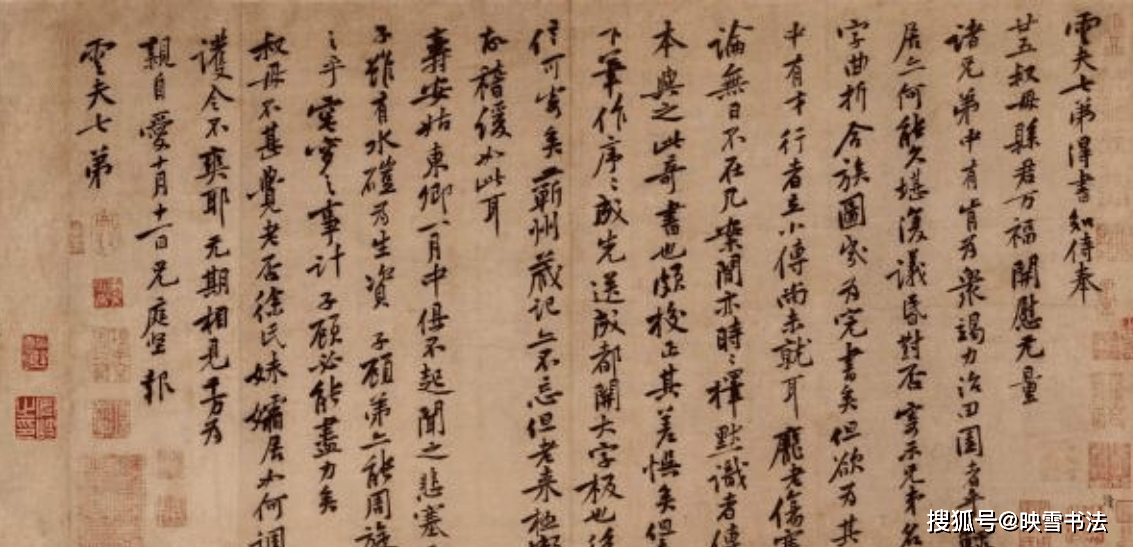 雲夫七弟得書知侍奉
廿五叔母縣君万福開慰无量
諸兄弟中有肯为衆竭力治田園者乎
居亦何能久堪復議昏對否寄示兄弟名
字曲折合族圖欲为完書矣但欲为其
中有才行者立小傳尚未就耳龐老傷寒
論無日不在几案間亦時〻擇默識者傳
本與之此奇書也頗校正其差悞矣但
下筆作序〻成先送成都開大字板也後
信可寄矣蘄州藏記亦不忘但老来極懶
故稽緩如此耳
壽安姑東卿一月中俱不起聞之悲塞
子雖有水磑为生資子顧弟亦能周旋
之乎窀穸之事計子顧必能盡力矣
叔母不甚覺老否徐氏妹孀居如何調
護令不爽耶无期相見千万为
親自愛十月十一日兄庭堅報
雲夫七弟
搜狐号@映雪书法